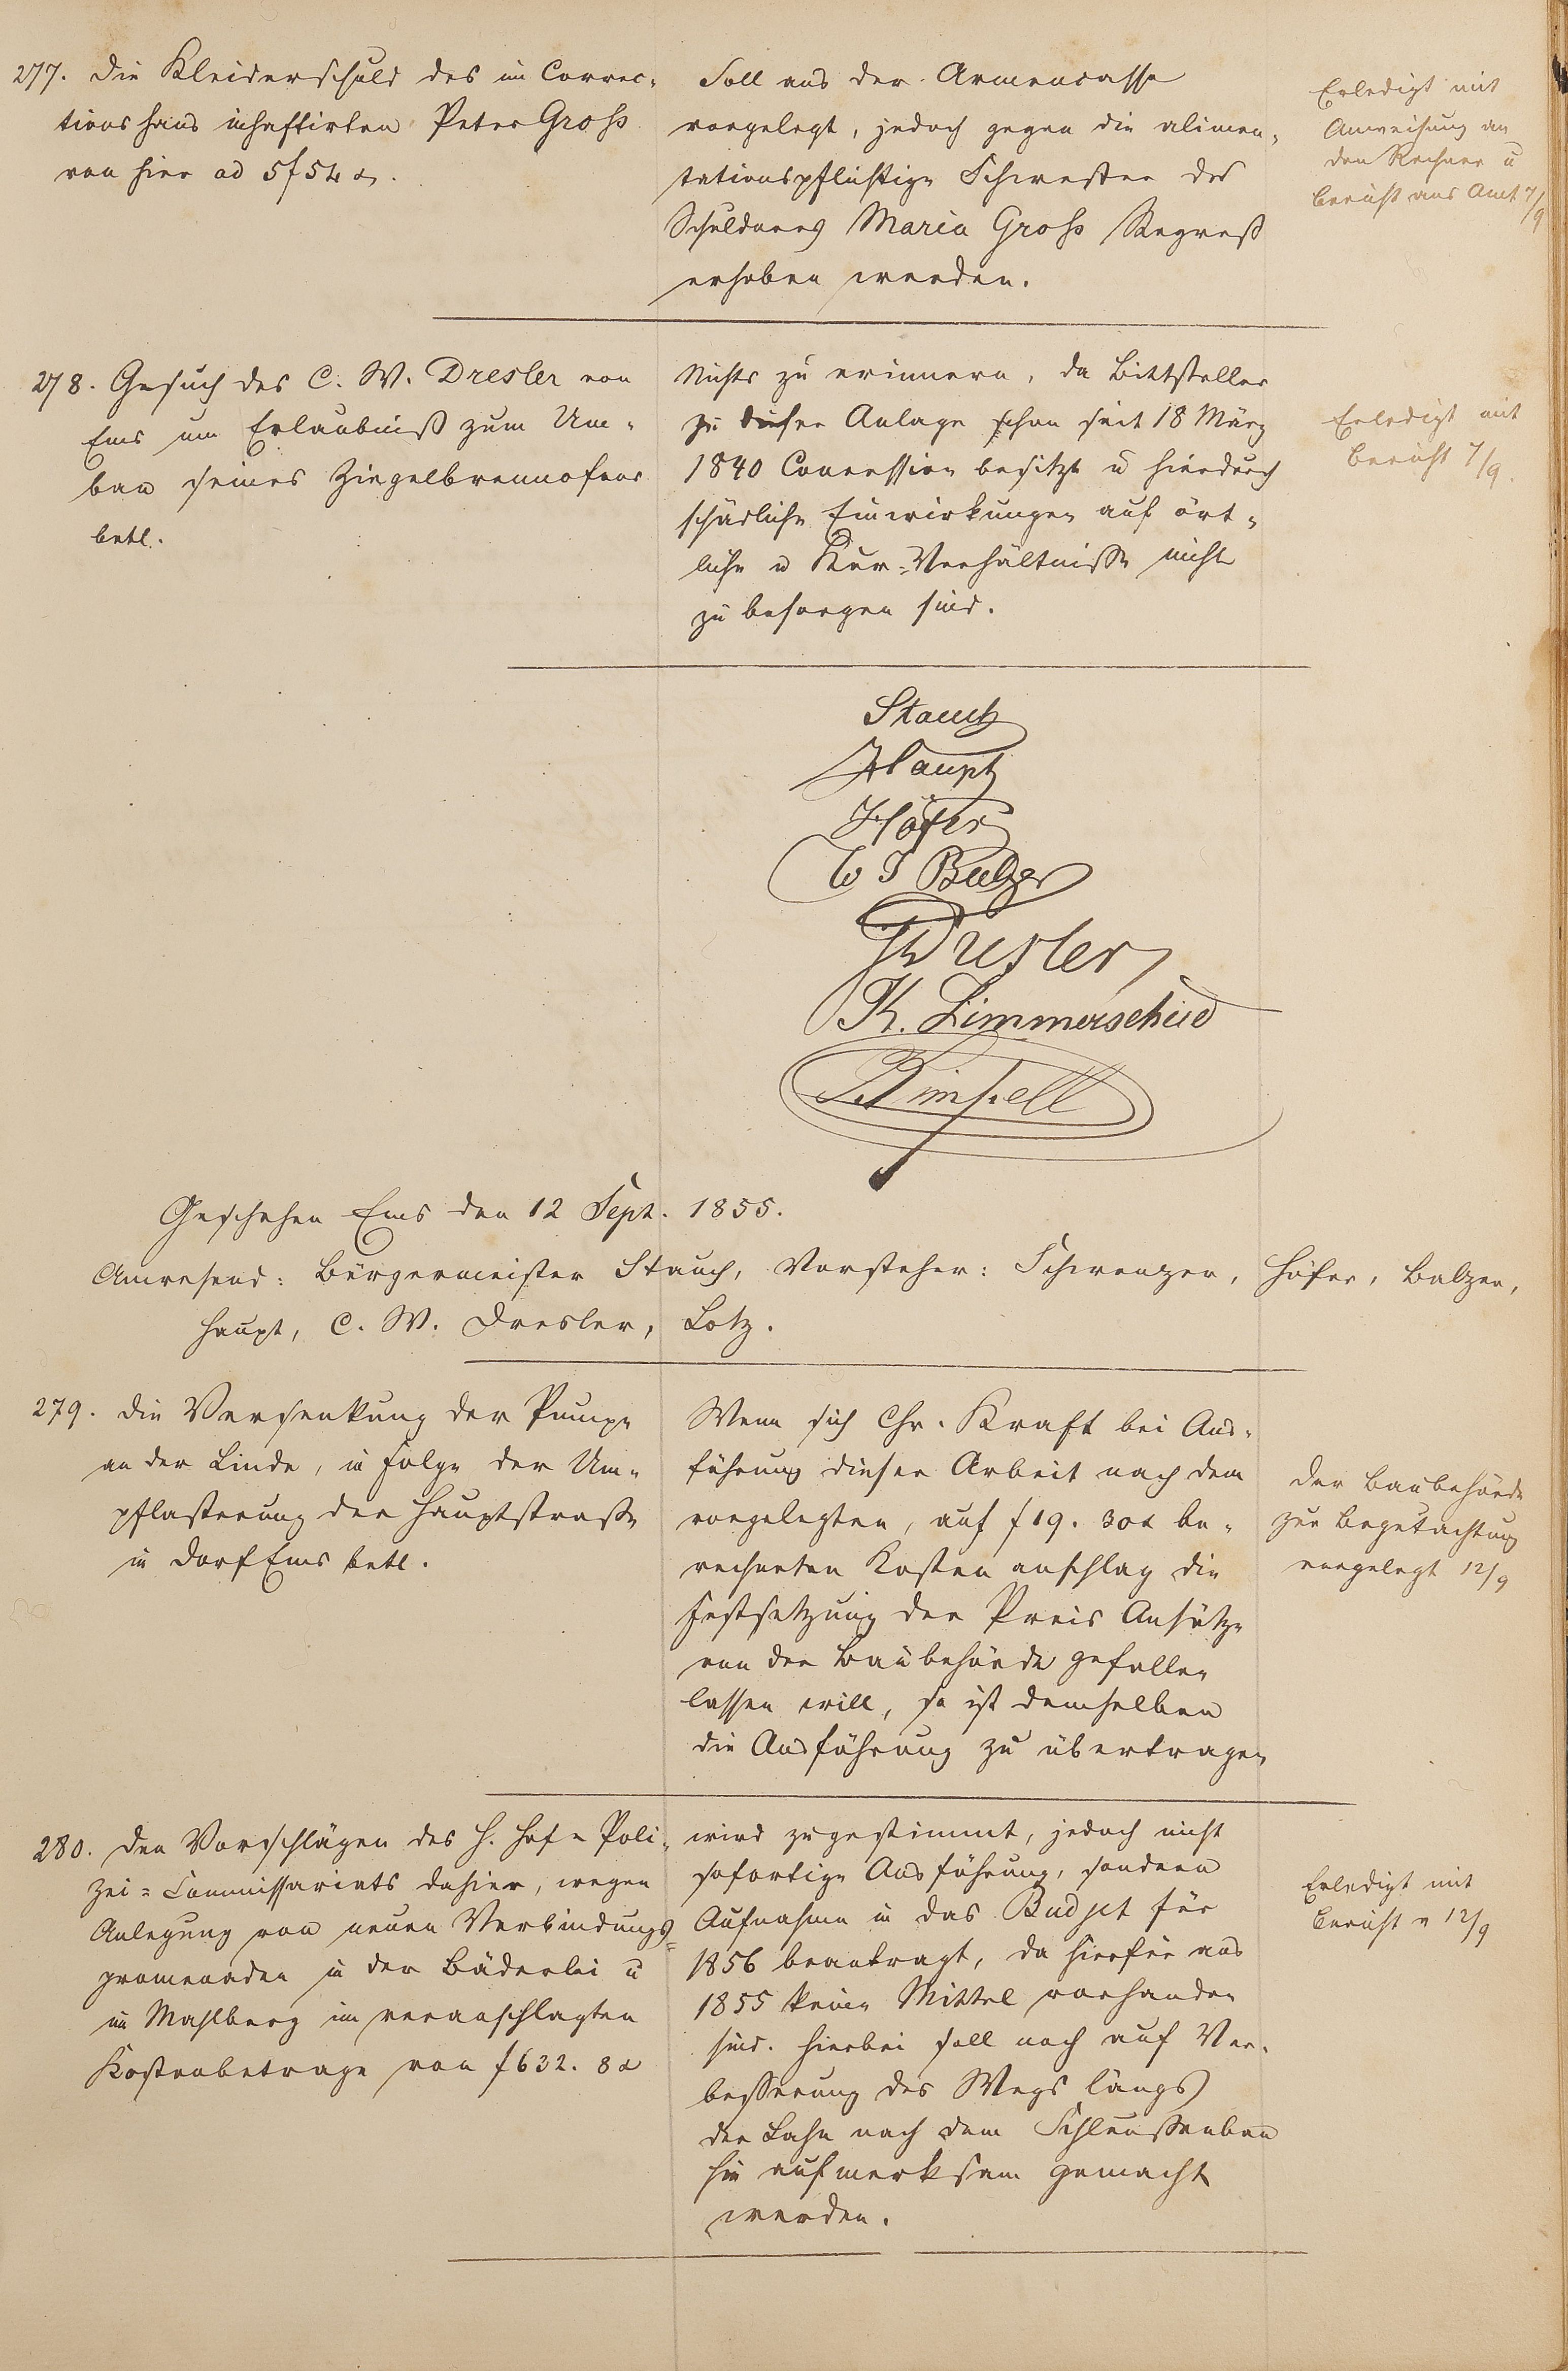 277. Die Kleiderschuld des im Correc-
tionshaus inhaftirten Peter Groß
von hier ad 5 f 54 x.
Soll aus der Armencasse
vorgelegt, jedoch gegen die alimen-
tationspflichtige Schwester des
Schuldners Maria Groß Regreß
erhoben werden.
Erledigt mit
Anweisung an
den Rechner u
Bericht ans Amt 7/9
278. Gesuch des C. W. Dresler von
Ems um Erlaubniß zum Um-
bau seines Ziegelbrennofens
betl.
Nichts zu erinnern, da Bittsteller
zu dieser Anlage schon seit 18 März
1840 Concession besitzt u hierdurch
schädliche Einwirkungen auf ört-
liche u Kur-Verhältnisse nicht
zu besorgen sind.
Erledigt mit
Bericht 7/9.
Stauch
Haupt
Höfer
W I Balzer
Dresler
K. Limmerscheid
Geschehen Ems den 12 Sept. 1855.
Anwesend: Bürgermeister Stauch, Vorsteher: Schwenzer, Höfer, Balzer,
Haupt, C. W. Dresler, Lotz.
279. Die Versenkung der Pumpe
an der Linde, in Folge der Um-
pflasterung der Hauptstraße
in Dorf Ems betl.
Wenn sich Chr. Kraft bei Aus-
führung dieser Arbeit nach dem
vorgelegten, auf f 19. 30 x be-
rechneten Kostenanschlag die
Festsetzung der Preis Ansätze
von der Baubehörde gefallen
lassen will, so ist demselben
die Ausführung zu übertragen
Der Baubehörde
zur Begutachtung
vorgelegt 12/9
280. Den Vorschlägen des H. Hof-Poli-
zei-Commissariats dahier, wegen
Anlegung von neuen Verbindungs-
promenaden in der Bäderlei u
im Mahlberg im veranschlagten
Kostenbetrage von f 632. 8 x
wird zugestimmt, jedoch nicht
sofortige Ausführung, sondern
Aufnahme in das Budjet für
1856 beantragt, da hierfür aus
1855 keine Mittel vorhanden
sind. Hierbei soll noch auf Ver-
besserung des Wegs längs
der Lahn nach dem Schleußenbau
hin aufmerksam gemacht
werden.
Erledigt mit
Bericht v 12/9